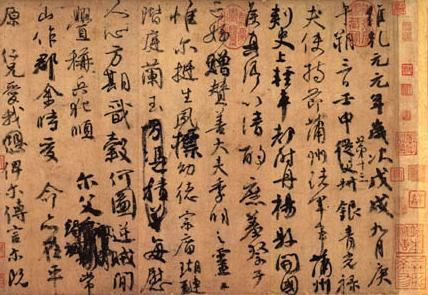 維乾元元年歲次戊戌九月庚
午朔三日壬申第十三叔銀青光祿
夫使持節蒲州諸軍事蒲州
刺史上輕車都尉丹楊縣開國
侯真卿以清酌庶羞祭于
亡姪贈贊善大夫季明之靈曰
惟爾挺生夙標幼德宗廟瑚璉
階庭蘭玉方憑積善每慰
人心方期戩穀何圖逆賊閒
釁稱兵犯順爾父竭誠常
山作郡余時受命亦在平
原仁兄愛我俾爾傳言爾既